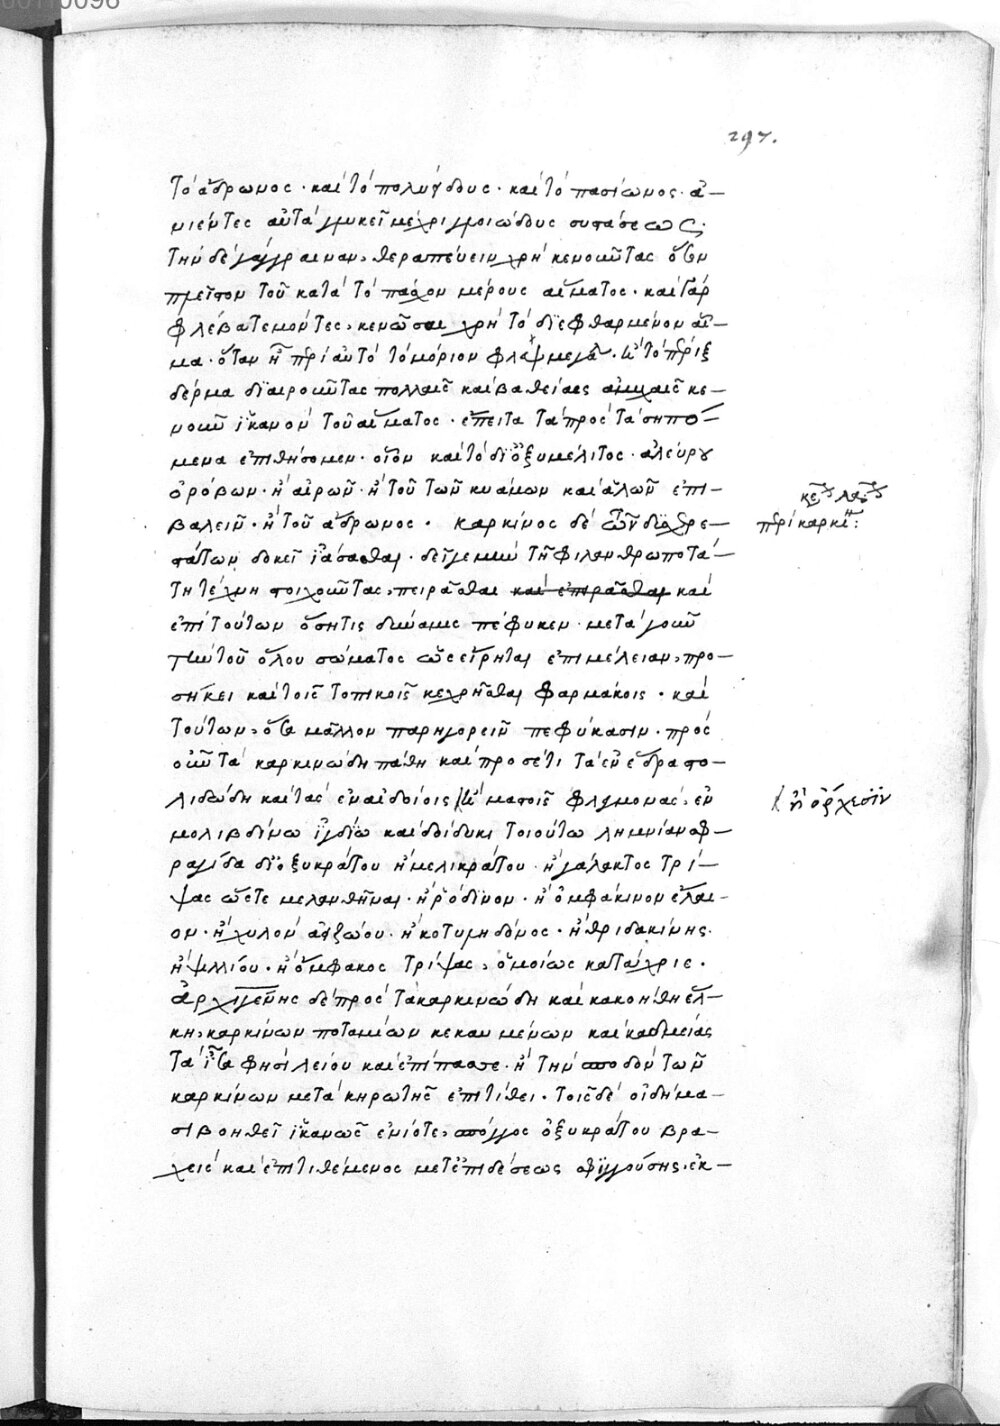 297.
τὸ ἄδρωνος · καὶ τὸ πολυείδους · καὶ τὸ πασίωνος · ἀ–
νιέντες αὐτὰ γλυκεῖ μέχρι γλοιώδους συστάσεως.
τὴν δὲ γάγγραιναν, θεραπεύειν χρὴ κενοῦντας ὅτι
πλεῖστον τοῦ κατὰ τὸ πάσχον μέρους αἵματος · καὶ γὰρ
φλέβα τεμόντες, κενῶσαι χρὴ τὸ διεφθαρμένον αἷ–
μα · ὅταν ᾖ περὶ αὐτὸ τὸ μόριον · καὶ τὸ πέριξ
δέρμα διαιροῦντας πολλαῖς καὶ βαθείαις ἀμυχαῖς κε–
νοῦν ἱκανὸν τοῦ αἵματος · ἔπειτα τὰ πρὸς τὰ σηπό–
μενα ἐπιθήσομεν · οἷον καὶ τὸ δι' ὀξυμέλιτος · ἀλεύρου
ὀρόβων · ἢ αἰρῶν · ἢ τοῦ τῶν κυάμων καὶ ἁλῶν ἐπι–
βαλεῖν · ἢ τοῦ ἄδρωνος · καρκίνος δὲ
περὶ καρκίν:
δοκεῖ ἰάσασθαι · δεῖ τῇ φιλανθρωποτά–
τῃ τέχνῃ στοιχοῦντας, πειρᾶσθαι καὶ ἐπιρᾶσθαι καὶ
ἐπὶ τούτων ὅση τις δύναμις πέφυκεν · μετὰ γοῦν
τὴν τοῦ ὅλου σώματος ὡς εἴρηται ἐπιμέλειαν, προ–
σήκει καὶ τοῖς τοπικοῖς κεχρῆσθαι φαρμάκοις · καὶ
τούτων, ὅσα μᾶλλον παρηγορεῖν πεφύκασιν · πρὸς
οὖν τὰ καρκινώδη πάθη καὶ προσέτι τὰ ἐν ἕδρᾳ στο–
λιδώδη καὶ τὰς ἐν αἰδοίοις / καὶ μαστοῖς φλεγμονὰς, ἐν
/ ἢ ὄρχεσιν
μολιβδίνῳ ἰγδίῳ καὶ δοίδυκι τοιούτῳ λημνίαν σφ–
ραγίδα δι' ὀξυκράτου ἢ μελικράτου · ἢ γάλακτος τρί–
ψας ὥστε μελανθῆναι · ἢ ῥόδινον · ἢ ὀμφάκινον ἔλαι–
ον · ἢ χυλὸν ἀειζώου · ἢ κοτυληδόνος · ἢ θριδακίνης ·
ἢ ψυλλίου · ἢ ὄμφακος τρίψας, ὁμοίως κατάχριε ·
ἀρχιγένης δὲ πρὸς τὰ καρκινώδη καὶ κακοήθη ἕλ–
κη, καρκίνων ποταμίων κεκαυμένων καὶ καδμείας
τὰ ἴσα φησὶ λείου καὶ ἐπίπασσε · ἢ τὴν σποδὸν τῶν
καρκίνων μετὰ κηρωτῆς ἐπιτίθει · τοῖς δὲ οἰδήμα–
σι βοηθεῖ ἱκανῶς ἐνίοτε, σπόγγος ὀξυκράτου βρα–
χεὶς καὶ ἐπιτιθέμενος μετ' ἐπιδέσεως σφιγγούσης · ἐκ–